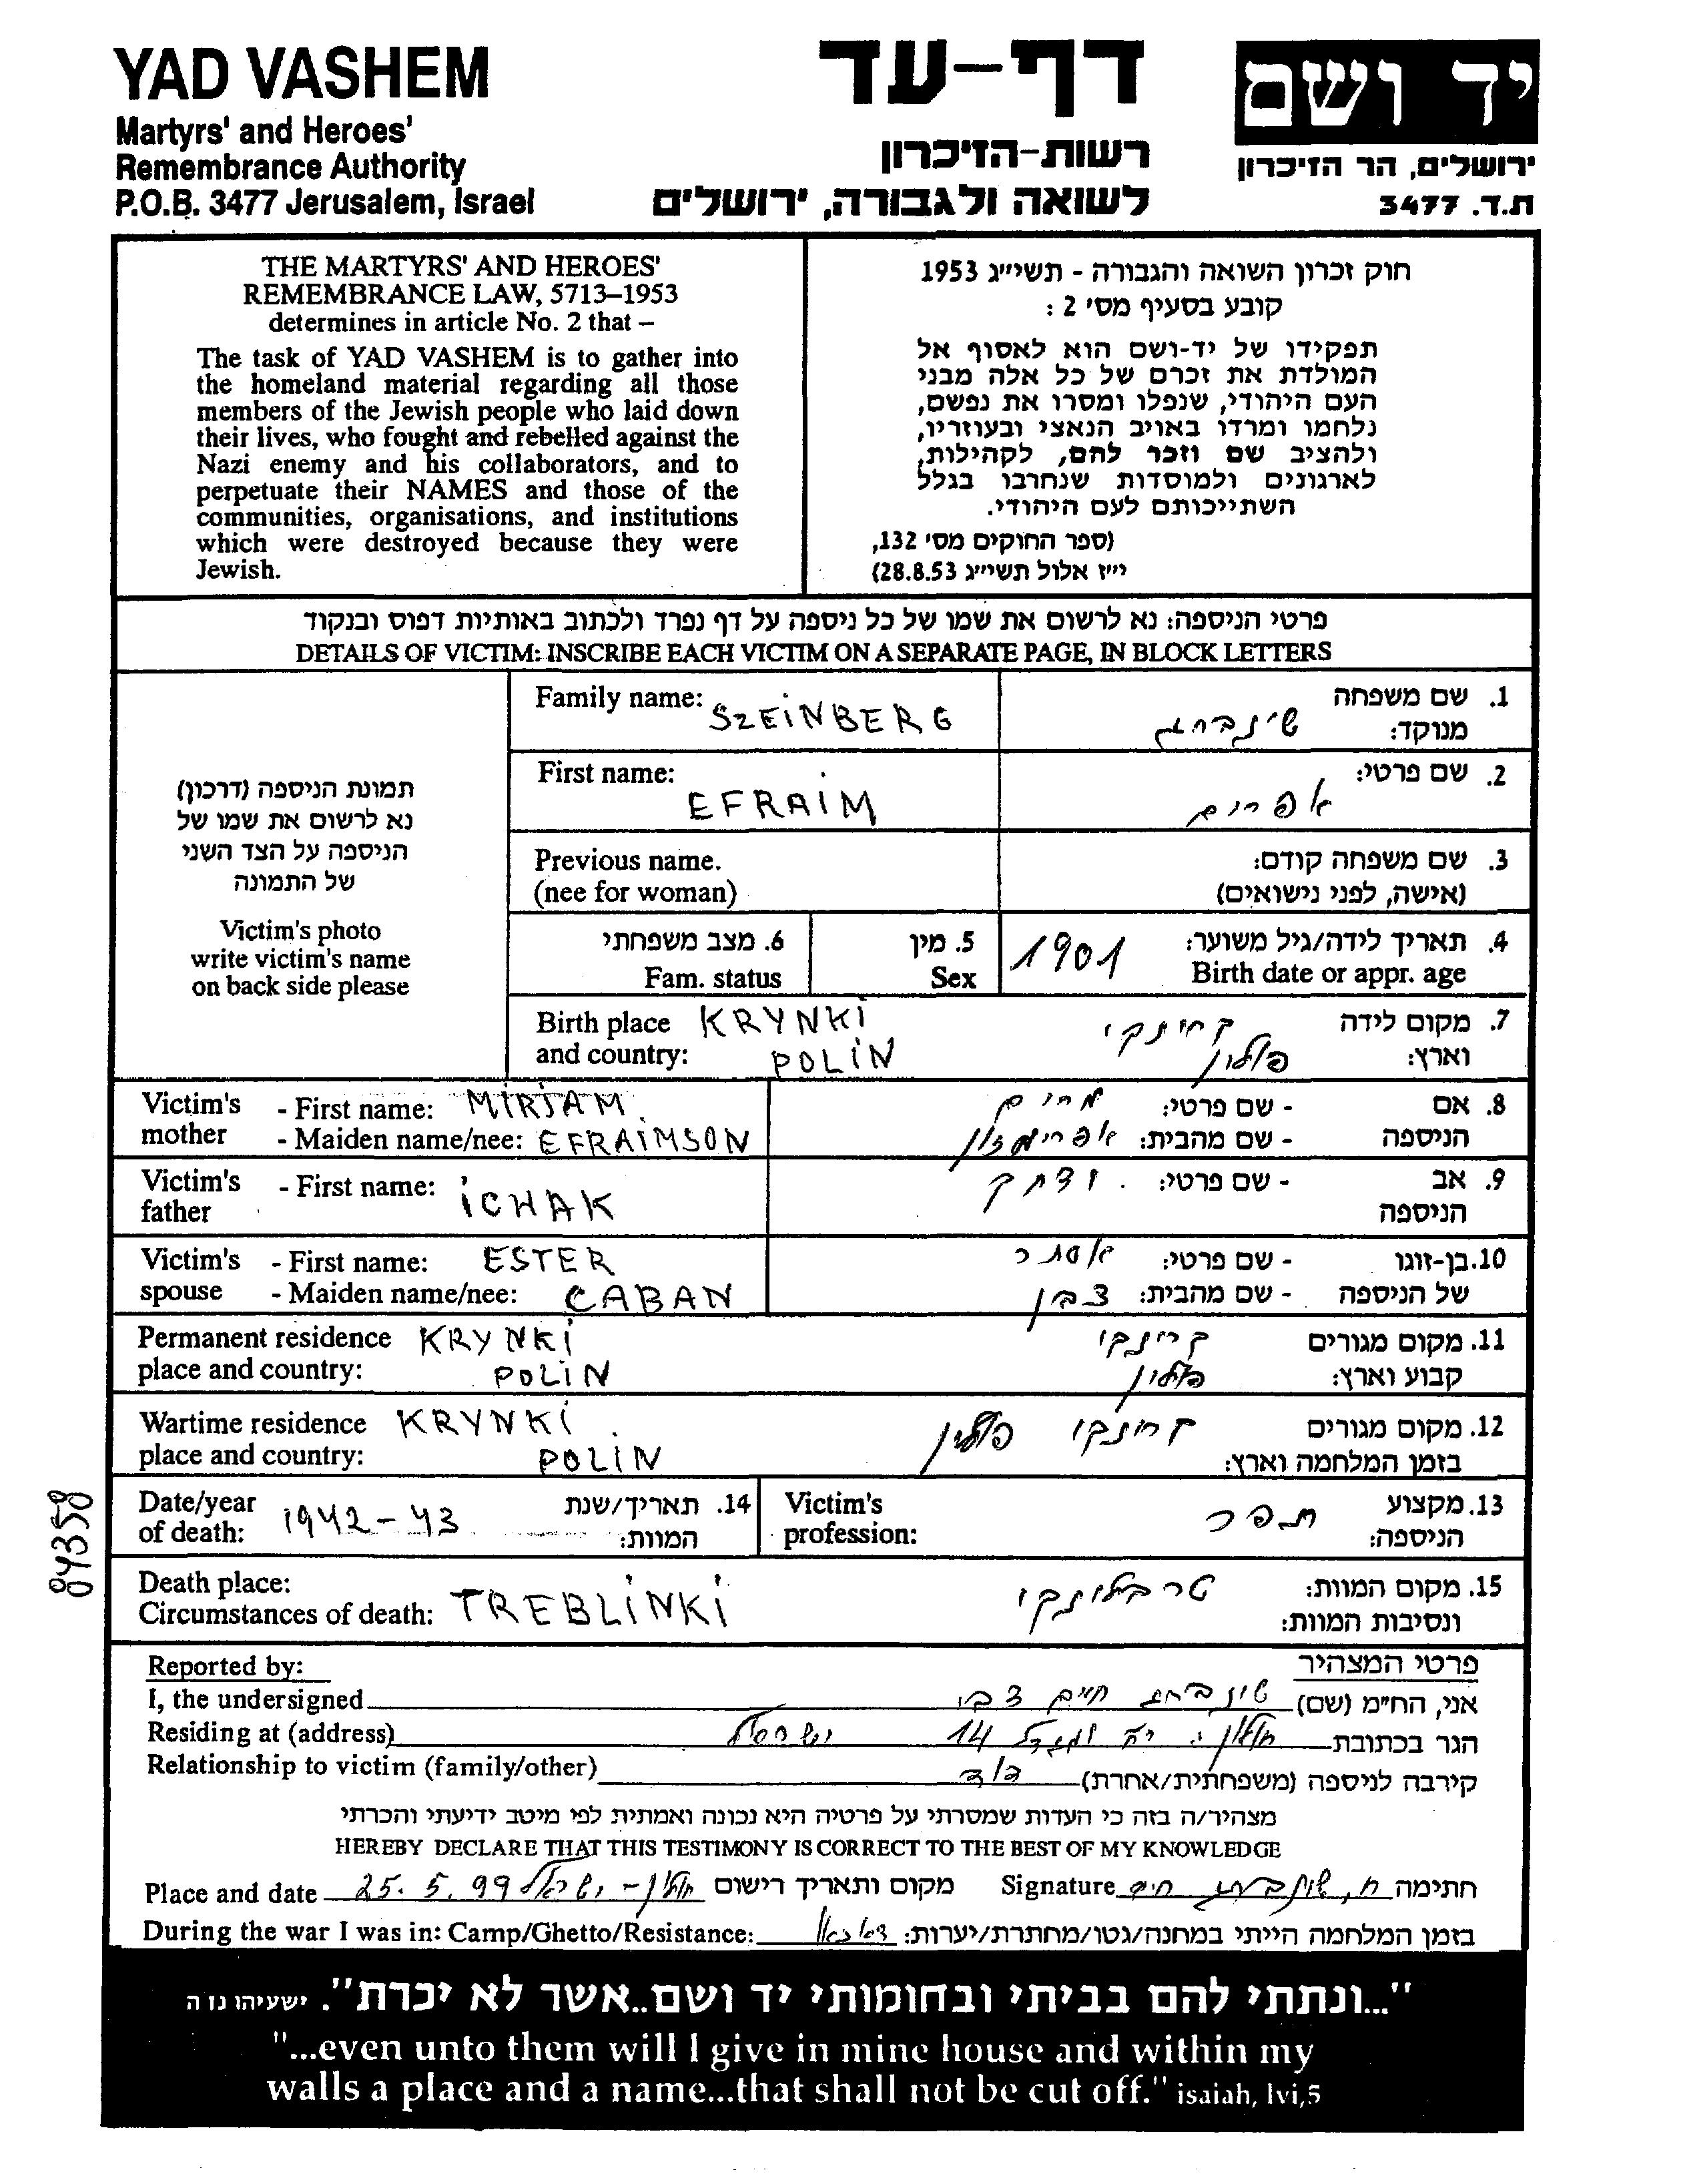 YAD VASHEM
Martyrs' and Heroes'
Remembrance Authority
P.O.B. 3477 Jerusalem, Israel
דף-עד
רשות-הזיכרון
לשואה ולגבורה, ירושלים
יד ושם
ירושלים, הר הזיכרון
ת.ד. 3477
THE MARTYRS' AND HEROES'
REMEMBRANCE LAW, 5713–1953
determines in article No. 2 that –
The task of YAD VASHEM is to gather into
the homeland material regarding all those
members of the Jewish people who laid down
their lives, who fought and rebelled against the
Nazi enemy and his collaborators, and to
perpetuate their NAMES and those of the
communities, organisations, and institutions
which were destroyed because they were
Jewish.
חוק זכרון השואה והגבורה - תשי״ג 1953
קובע בסעיף מס׳ 2 :
תפקידו של יד-ושם הוא לאסוף אל
המולדת את זכרם של כל אלה מבני
העם היהודי, שנפלו ומסרו את נפשם,
נלחמו ומרדו באויב הנאצי ובעוזריו,
ולהציב שם וזכר להם, לקהילות,
לארגונים ולמוסדות שנחרבו בגלל
השתייכותם לעם היהודי.
(ספר החוקים מס׳ 132,
י״ז אלול תשי״ג 28.8.53)
פרטי הניספה: נא לרשום את שמו של כל ניספה על דף נפרד ולכתוב באותיות דפוס ובנקוד
DETAILS OF VICTIM: INSCRIBE EACH VICTIM ON A SEPARATE PAGE, IN BLOCK LETTERS
תמונת הניספה (דרכון)
נא לרשום את שמו של
הניספה על הצד השני
של התמונה
Victim's photo
write victim's name
on back side please
Family name: SZEINBERG
1. שם משפחה
מנוקד: שינברג
First name: EFRAIM
2. שם פרטי: אפרים
Previous name.
(nee for woman)
3. שם משפחה קודם:
(אישה, לפני נישואים)
6. מצב משפחתי
Fam. status
5. מין
Sex
4. תאריך לידה/גיל משוער: 1901
Birth date or appr. age
Birth place KRYNKI
and country: POLIN
7. מקום לידה קרינקי
וארץ: פולין
Victim's - First name: MIRJAM
mother - Maiden name/nee: EFRAIMSON
8. אם - שם פרטי: מרים
הניספה - שם מהבית: אפרימזון
Victim's - First name: ICHAK
father
9. אב - שם פרטי: יצחק
הניספה
Victim's - First name: ESTER
spouse - Maiden name/nee: CABAN
10. בן-זוגו - שם פרטי: אסתר
של הניספה - שם מהבית: צבן
Permanent residence KRYNKI
place and country: POLIN
11. מקום מגורים קרינקי
קבוע וארץ: פולין
Wartime residence KRYNKI
place and country: POLIN
12. מקום מגורים קרינקי פולין
בזמן המלחמה וארץ:
Date/year
of death: 1942-43
14. תאריך/שנת
המוות:
Victim's
profession:
13. מקצוע תפר
הניספה:
Death place:
Circumstances of death: TREBLINKI
15. מקום המוות: טרבלינקי
ונסיבות המוות:
Reported by:
פרטי המצהיר
I, the undersigned
אני, הח״מ (שם) שינברג חיים צבי
Residing at (address)
הגר בכתובת חולון 14 ישראל
Relationship to victim (family/other)
קירבה לניספה (משפחתית/אחרת) דוד
מצהיר/ה בזה כי העדות שמסרתי על פרטיה היא נכונה ואמתית לפי מיטב ידיעתי והכרתי
HEREBY DECLARE THAT THIS TESTIMONY IS CORRECT TO THE BEST OF MY KNOWLEDGE
Place and date 25.5.99 חולון - ישראל מקום ותאריך רישום
Signature שינברג חיים חתימה
During the war I was in: Camp/Ghetto/Resistance:
בזמן המלחמה הייתי במחנה/גטו/מחתרת/יערות:
84358
"...ונתתי להם בביתי ובחומותי יד ושם..אשר לא יכרת". ישעיהו נו ה
"...even unto them will I give in mine house and within my
walls a place and a name...that shall not be cut off." isaiah, lvi,5